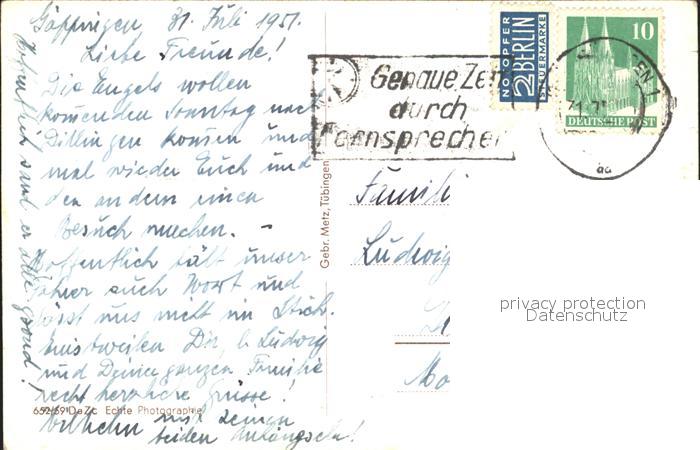 Göppingen 31. Juli 1951.
Liebe Freunde!
Die Engels wollen
kommenden Sonntag nach
Dillingen kommen und
mal wieder Euch und
den andern einen
Besuch machen. –
Hoffentlich hält unser
Fahrer auch Wort und
lässt uns nicht im Stich.
Einstweilen Dir, l. Ludwig
und Deiner ganzen Familie
recht herzliche Grüsse!
Wilhelm mit seinen
beiden Anhängseln!
Hoffentlich seid er alle gsond!
652/59 DeZc Echte Photographie
Gebr. Metz, Tübingen
Genaue Zeit
durch
Fernsprecher
NOTOPFER
2 BERLIN
STEUERMARKE
10
DEUTSCHE POST
Famili
Ludwig
Mo
privacy protection
Datenschutz